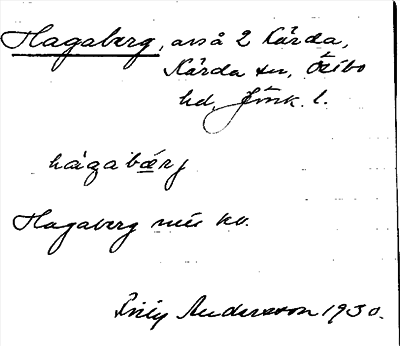 Hagaberg, avs å 2 Kärda,
Kärda sn, Östbo
hd, Jönk. l.
hàgabærj
Hagaberg
Andersson 1930.